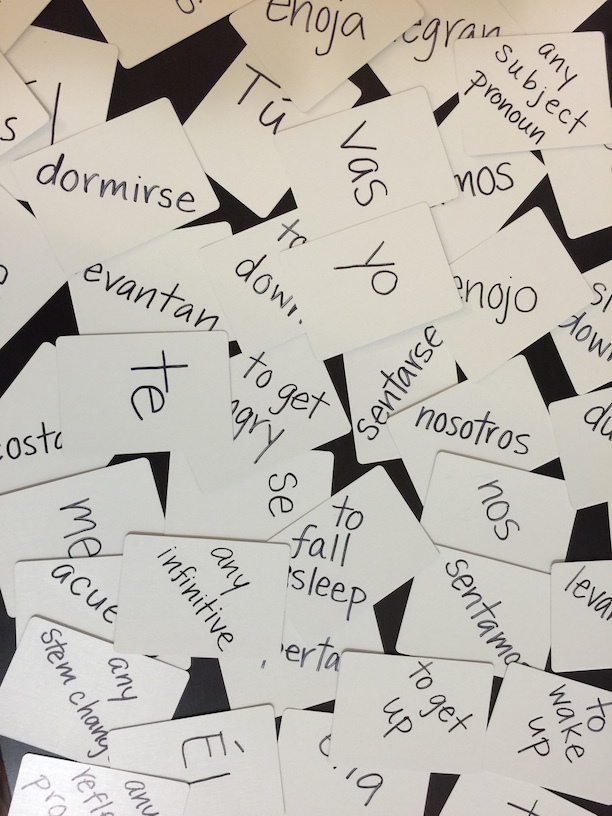 enoja
egran
any
subject
pronoun
Tú
vas
mos
dormirse
to
down
yo
enojo
evantan
down
te
to get
ngry
sentarse
nosotros
costa
se
nos
me
to
fall
sleep
acue
any
infinitive
sentamo
leva
perta
any
stem chang
to get
up
to
wake
up
Él
any
refle
pro